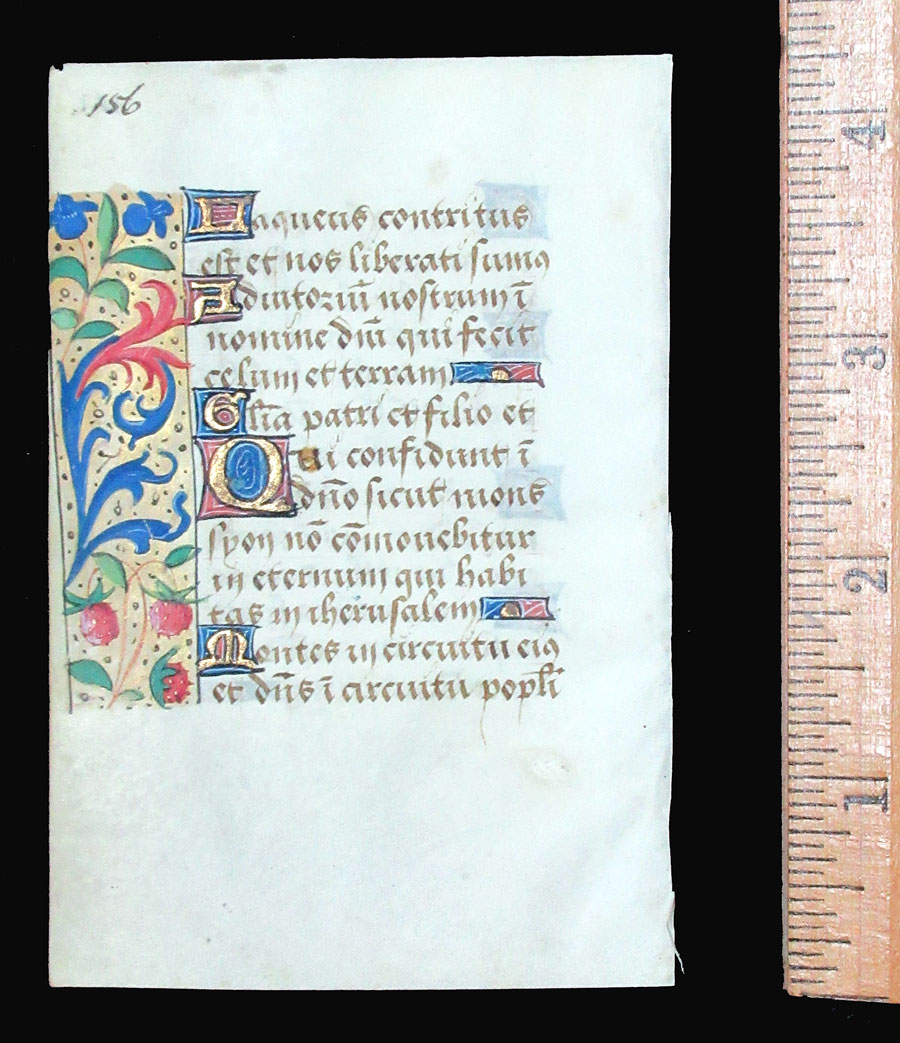 156
Laqueus contritus
est et nos liberati sumꝰ
Adiutoriū nostrum ī
nomine dn̄i qui fecit
celum et terram
Gl̄ia patri et filio et
Qui confidunt ī
dn̄o sicut mons
syon nō cōmouebitur
in eternum qui habi
tas in iherusalem
Montes in circuitu eiꝰ
et dn̄s ī circuitu popl̄i
4
3
2
1